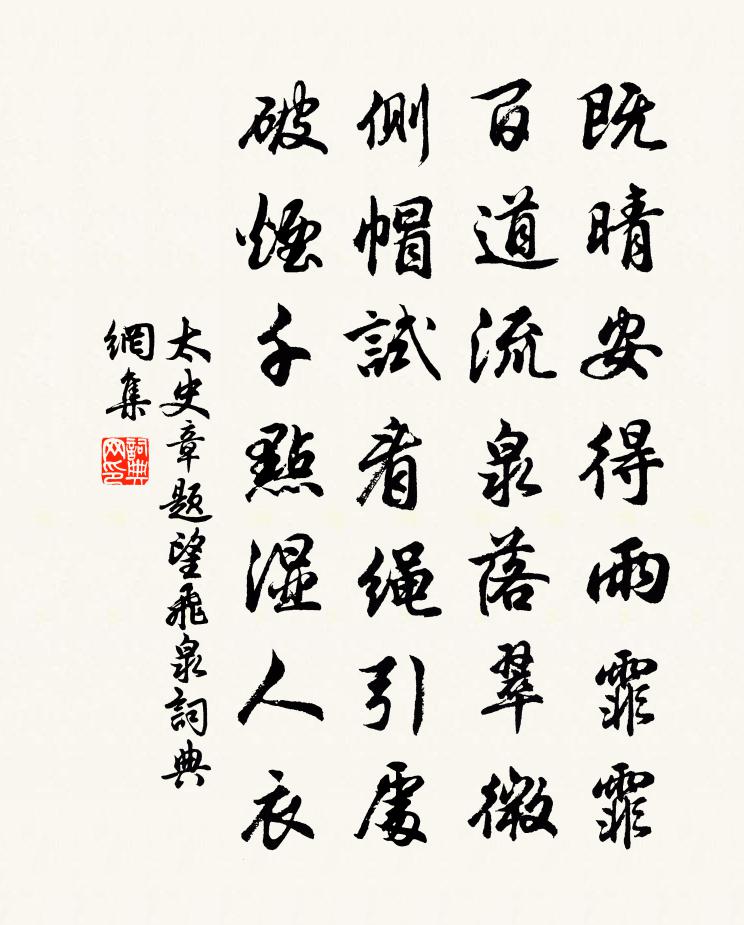 既晴安得雨霏霏
百道流泉落翠微
侧帽試看绳引處
破煙千點湿人衣
太史章题望飛泉詞典
網集
詞典网印